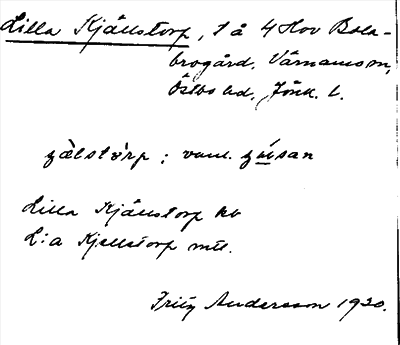 Lilla Kjällstorp, 1 å 4 Hov Bola-
brogård, Värnamo sn,
Östbo hd, Jönk. l.
şälstorp; vanl. şúsan
Lilla Kjällstorp kb
L:a Kjellstorp mtl.
Fritz Andersson 1930.